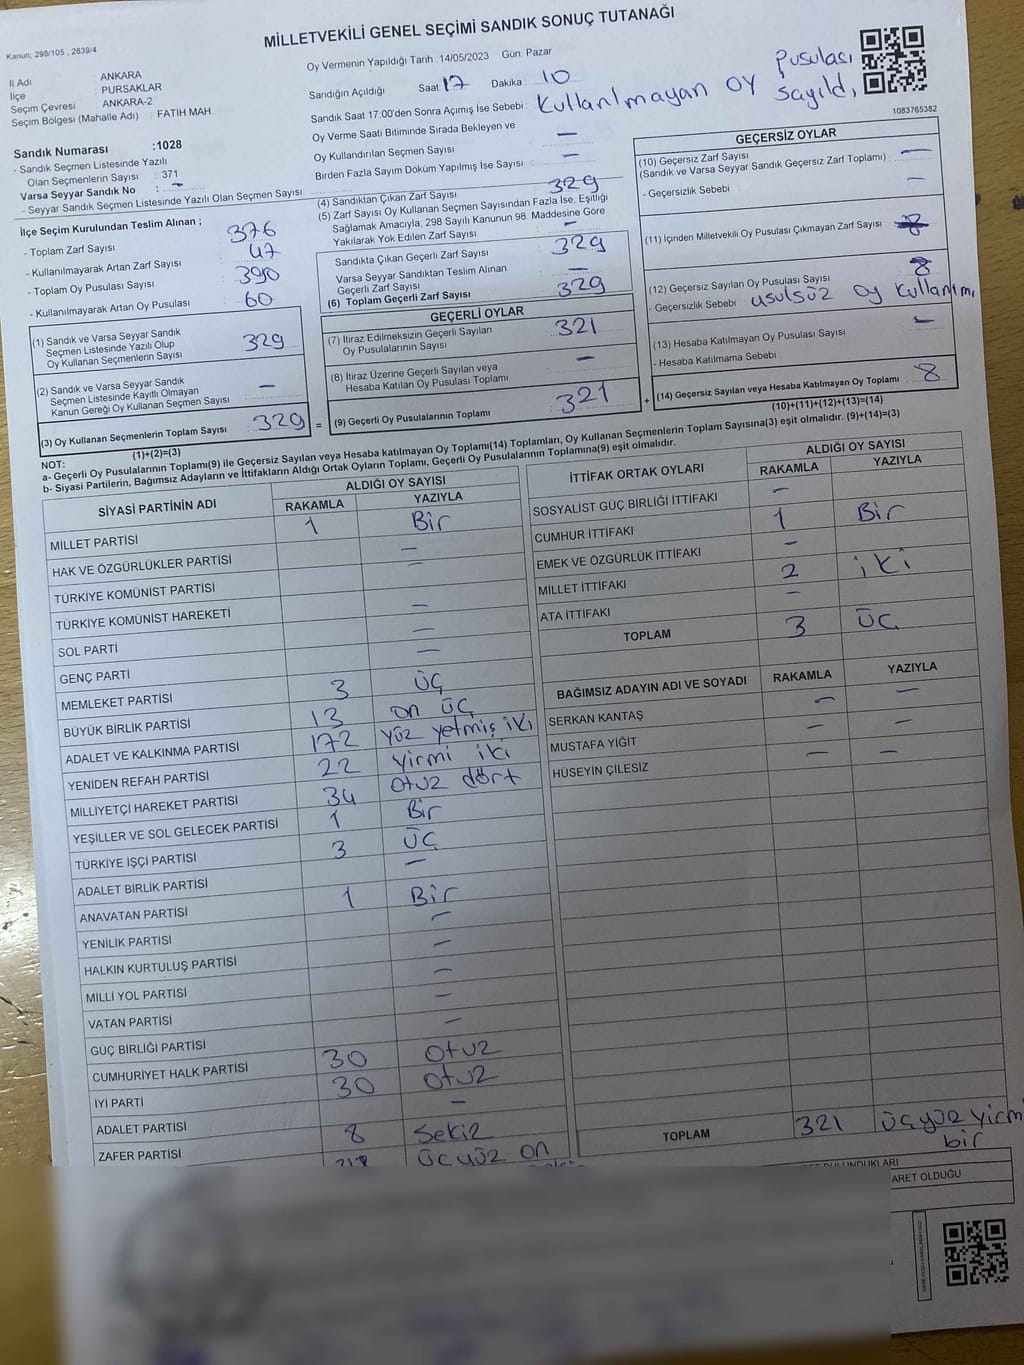 MİLLETVEKİLİ GENEL SEÇİMİ SANDIK SONUÇ TUTANAĞI
Kanun: 298/105 , 2839/4
İl Adı : ANKARA
İlçe : PURSAKLAR
Seçim Çevresi : ANKARA-2
Seçim Bölgesi (Mahalle Adı) : FATİH MAH.
Oy Vermenin Yapıldığı Tarih :14/05/2023 Gün: Pazar
Sandığın Açıldığı Saat 17 Dakika : 10
Sandık Saat 17:00'den Sonra Açımış İse Sebebi : Kullanılmayan oy pusulası sayıldı.
Oy Verme Saati Bitiminde Sırada Bekleyen ve
Oy Kullandırılan Seçmen Sayısı : —
Birden Fazla Sayım Döküm Yapılmış İse Sayısı : —
1083765382
Sandık Numarası :1028
- Sandık Seçmen Listesinde Yazılı
Olan Seçmenlerin Sayısı : 371
Varsa Seyyar Sandık No : —
- Seyyar Sandık Seçmen Listesinde Yazılı Olan Seçmen Sayısı:
İlçe Seçim Kurulundan Teslim Alınan ;
- Toplam Zarf Sayısı : 376
- Kullanılmayarak Artan Zarf Sayısı : 47
- Toplam Oy Pusulası Sayısı : 390
- Kullanılmayarak Artan Oy Pusulası : 60
(1) Sandık ve Varsa Seyyar Sandık
Seçmen Listesinde Yazılı Olup
Oy Kullanan Seçmenlerin Sayısı : 329
(2) Sandık ve Varsa Seyyar Sandık
Seçmen Listesinde Kayıtlı Olmayan
Kanun Gereği Oy Kullanan Seçmen Sayısı : —
(3) Oy Kullanan Seçmenlerin Toplam Sayısı : 329
(1)+(2)=(3)
(4) Sandıktan Çıkan Zarf Sayısı : 329
(5) Zarf Sayısı Oy Kullanan Seçmen Sayısından Fazla İse, Eşitliği
Sağlamak Amacıyla, 298 Sayılı Kanunun 98. Maddesine Göre
Yakılarak Yok Edilen Zarf Sayısı : —
Sandıkta Çıkan Geçerli Zarf Sayısı : 329
Varsa Seyyar Sandıktan Teslim Alınan
Geçerli Zarf Sayısı : —
(6) Toplam Geçerli Zarf Sayısı : 329
GEÇERLİ OYLAR
(7) İtiraz Edilmeksizin Geçerli Sayılan
Oy Pusulalarının Sayısı : 321
(8) İtiraz Üzerine Geçerli Sayılan veya
Hesaba Katılan Oy Pusulası Toplamı : —
= (9) Geçerli Oy Pusulalarının Toplamı : 321
GEÇERSİZ OYLAR
(10) Geçersiz Zarf Sayısı : —
(Sandık ve Varsa Seyyar Sandık Geçersiz Zarf Toplamı)
- Geçersizlik Sebebi : —
(11) İçinden Milletvekili Oy Pusulası Çıkmayan Zarf Sayısı :
(12) Geçersiz Sayılan Oy Pusulası Sayısı : 8
- Geçersizlik Sebebi : usulsüz oy kullanımı
(13) Hesaba Katılmayan Oy Pusulası Sayısı : —
- Hesaba Katılmama Sebebi :
+ (14) Geçersiz Sayılan veya Hesaba Katılmayan Oy Toplamı : 8
(10)+(11)+(12)+(13)=(14)
NOT:
a- Geçerli Oy Pusulalarının Toplamı(9) ile Geçersiz Sayılan veya Hesaba katılmayan Oy Toplamı(14) Toplamları, Oy Kullanan Seçmenlerin Toplam Sayısına(3) eşit olmalıdır. (9)+(14)=(3)
b- Siyasi Partilerin, Bağımsız Adayların ve İttifakların Aldığı Ortak Oyların Toplamı, Geçerli Oy Pusulalarının Toplamına(9) eşit olmalıdır.
SİYASİ PARTİNİN ADI ALDIĞI OY SAYISI
RAKAMLA YAZIYLA
MİLLET PARTİSİ 1 Bir
HAK VE ÖZGÜRLÜKLER PARTİSİ —
TÜRKİYE KOMÜNİST PARTİSİ —
TÜRKİYE KOMÜNİST HAREKETİ —
SOL PARTİ —
GENÇ PARTİ —
MEMLEKET PARTİSİ 3 Üç
BÜYÜK BİRLİK PARTİSİ 13 on üç
ADALET VE KALKINMA PARTİSİ 172 yüz yetmiş iki
YENİDEN REFAH PARTİSİ 22 yirmi iki
MİLLİYETÇİ HAREKET PARTİSİ 34 otuz dört
YEŞİLLER VE SOL GELECEK PARTİSİ 1 Bir
TÜRKİYE İŞÇİ PARTİSİ 3 Üç
ADALET BİRLİK PARTİSİ —
ANAVATAN PARTİSİ 1 Bir
YENİLİK PARTİSİ —
HALKIN KURTULUŞ PARTİSİ —
MİLLİ YOL PARTİSİ —
VATAN PARTİSİ —
GÜÇ BİRLİĞİ PARTİSİ —
CUMHURİYET HALK PARTİSİ 30 otuz
İYİ PARTİ 30 otuz
ADALET PARTİSİ —
ZAFER PARTİSİ 8 Sekiz
üçyüz on
İTTİFAK ORTAK OYLARI ALDIĞI OY SAYISI
RAKAMLA YAZIYLA
SOSYALİST GÜÇ BİRLİĞİ İTTİFAKI —
CUMHUR İTTİFAKI 1 Bir
EMEK VE ÖZGÜRLÜK İTTİFAKI —
MİLLET İTTİFAKI 2 iki
ATA İTTİFAKI —
TOPLAM 3 Üç
BAĞIMSIZ ADAYIN ADI VE SOYADI RAKAMLA YAZIYLA
SERKAN KANTAŞ — —
MUSTAFA YİĞİT — —
HÜSEYİN ÇİLESİZ — —
TOPLAM 321 üçyüz yirmi bir
ARET OLDUĞU